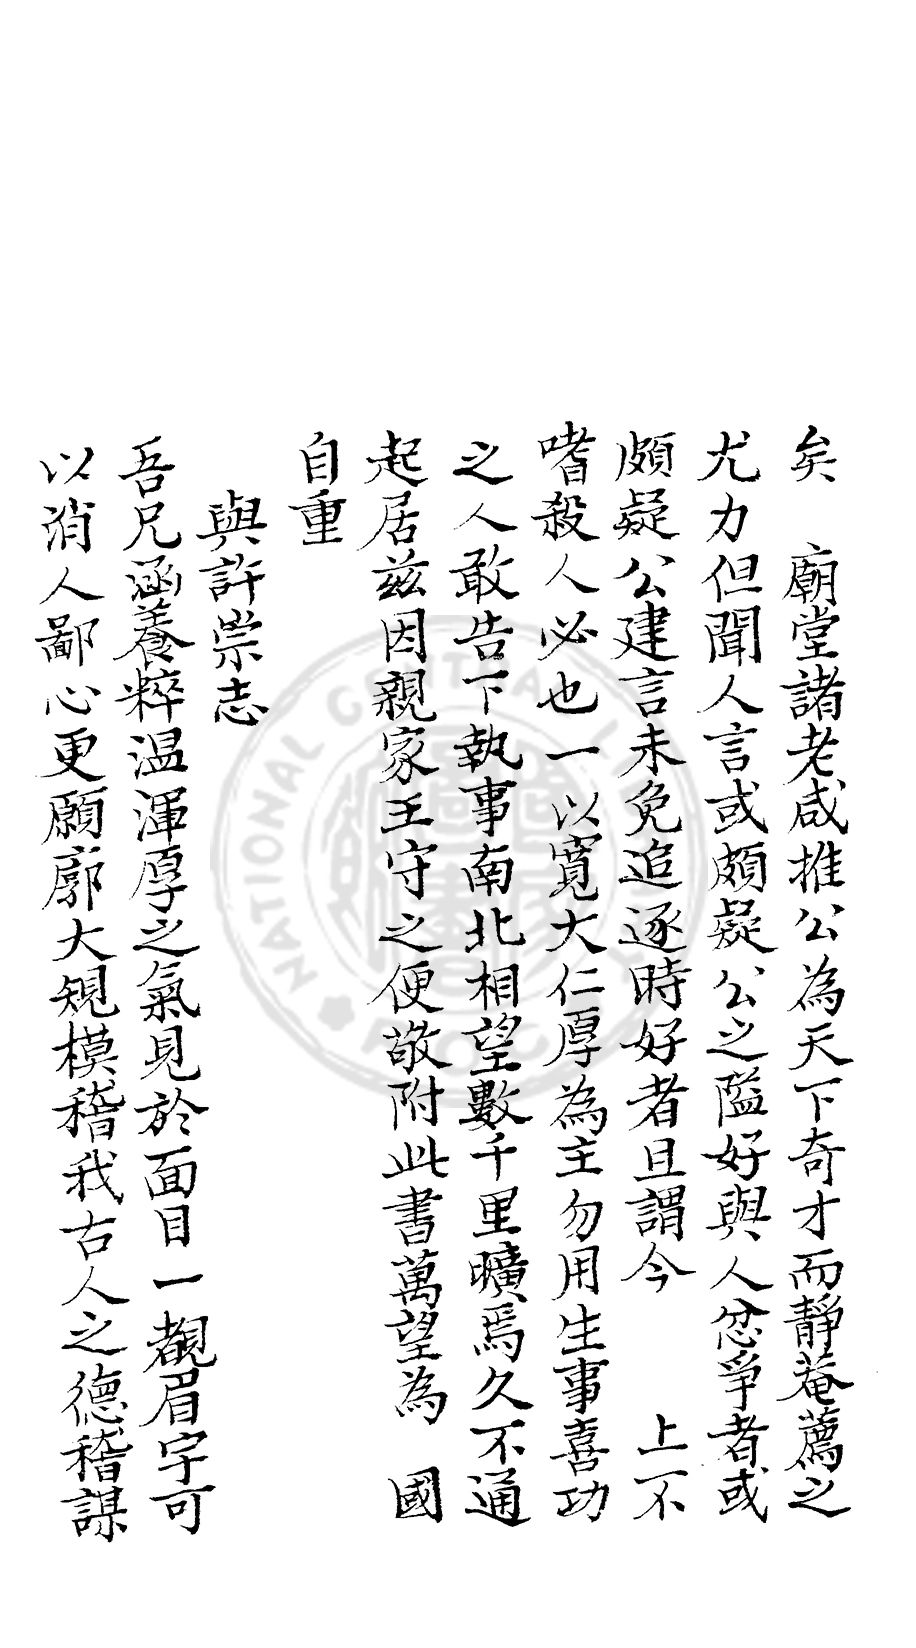 矣　廟堂諸老咸推公為天下奇才而靜菴薦之
尤力但聞人言或頗疑公之隘好與人忿爭者或
頗疑公建言未免追逐時好者且謂今　上不
嗜殺人必也一以寬大仁厚為主勿用生事喜功
之人敢告下執事南北相望數千里曠焉久不通
起居茲因親家王守之便敬附此書萬望為　國
自重
與許崇志
吾兄涵養粹温渾厚之氣見於面目一覩眉宇可
以消人鄙心更願廓大規模稽我古人之德稽謀
NATIONAL CENTRAL LI